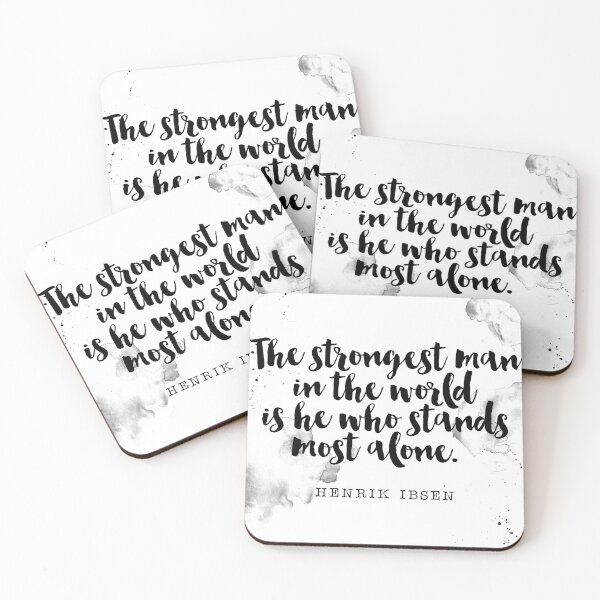 The strongest man
in the world
is he who stands
The strongest man
in the world
is he who stands
most alone.
The strongest man
in the world
is he who stands
most alone
HENRIK I
The strongest man
in the world
is he who stands
most alone.
HENRIK IBSEN